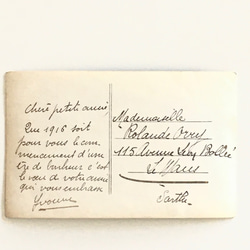 Chère petite amie,
Que 1916 soit
pour vous le com
mencement d'une
ère de bonheur c'est
le vœu de votre amie
qui vous embrasse
Yvonne
Mademoiselle
Rolande Ovry
115 Avenue Léon Bollée
Le Mans
Sarthe